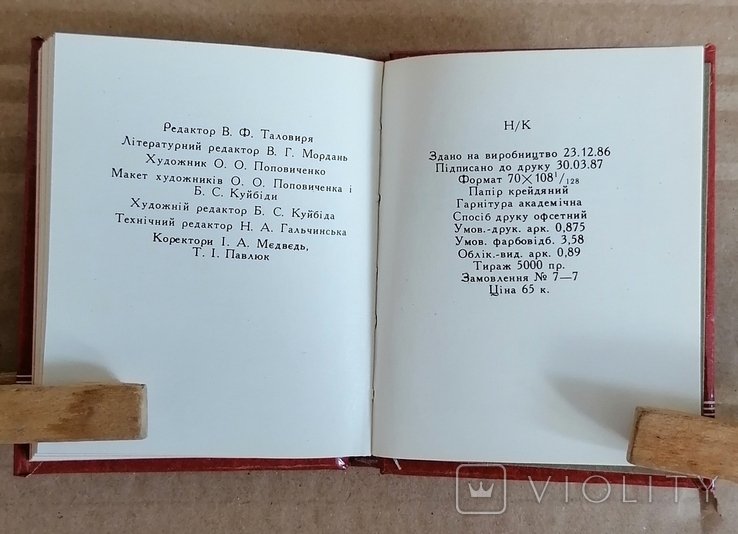 Редактор В. Ф. Таловиря
Літературний редактор В. Г. Мордань
Художник О. О. Поповиченко
Макет художників О. О. Поповиченка і
Б. С. Куйбіди
Художній редактор Б. С. Куйбіда
Технічний редактор Н. А. Гальчинська
Коректори І. А. Мєдвєдь,
Т. І. Павлюк
Н/К
Здано на виробництво 23.12.86
Підписано до друку 30.03.87
Формат 70×108¹/₁₂₈
Папір крейдяний
Гарнітура академічна
Спосіб друку офсетний
Умов.-друк. арк. 0,875
Умов. фарбовідб. 3,58
Облік.-вид. арк. 0,89
Тираж 5000 пр.
Замовлення № 7—7
Ціна 65 к.
VIOLITY